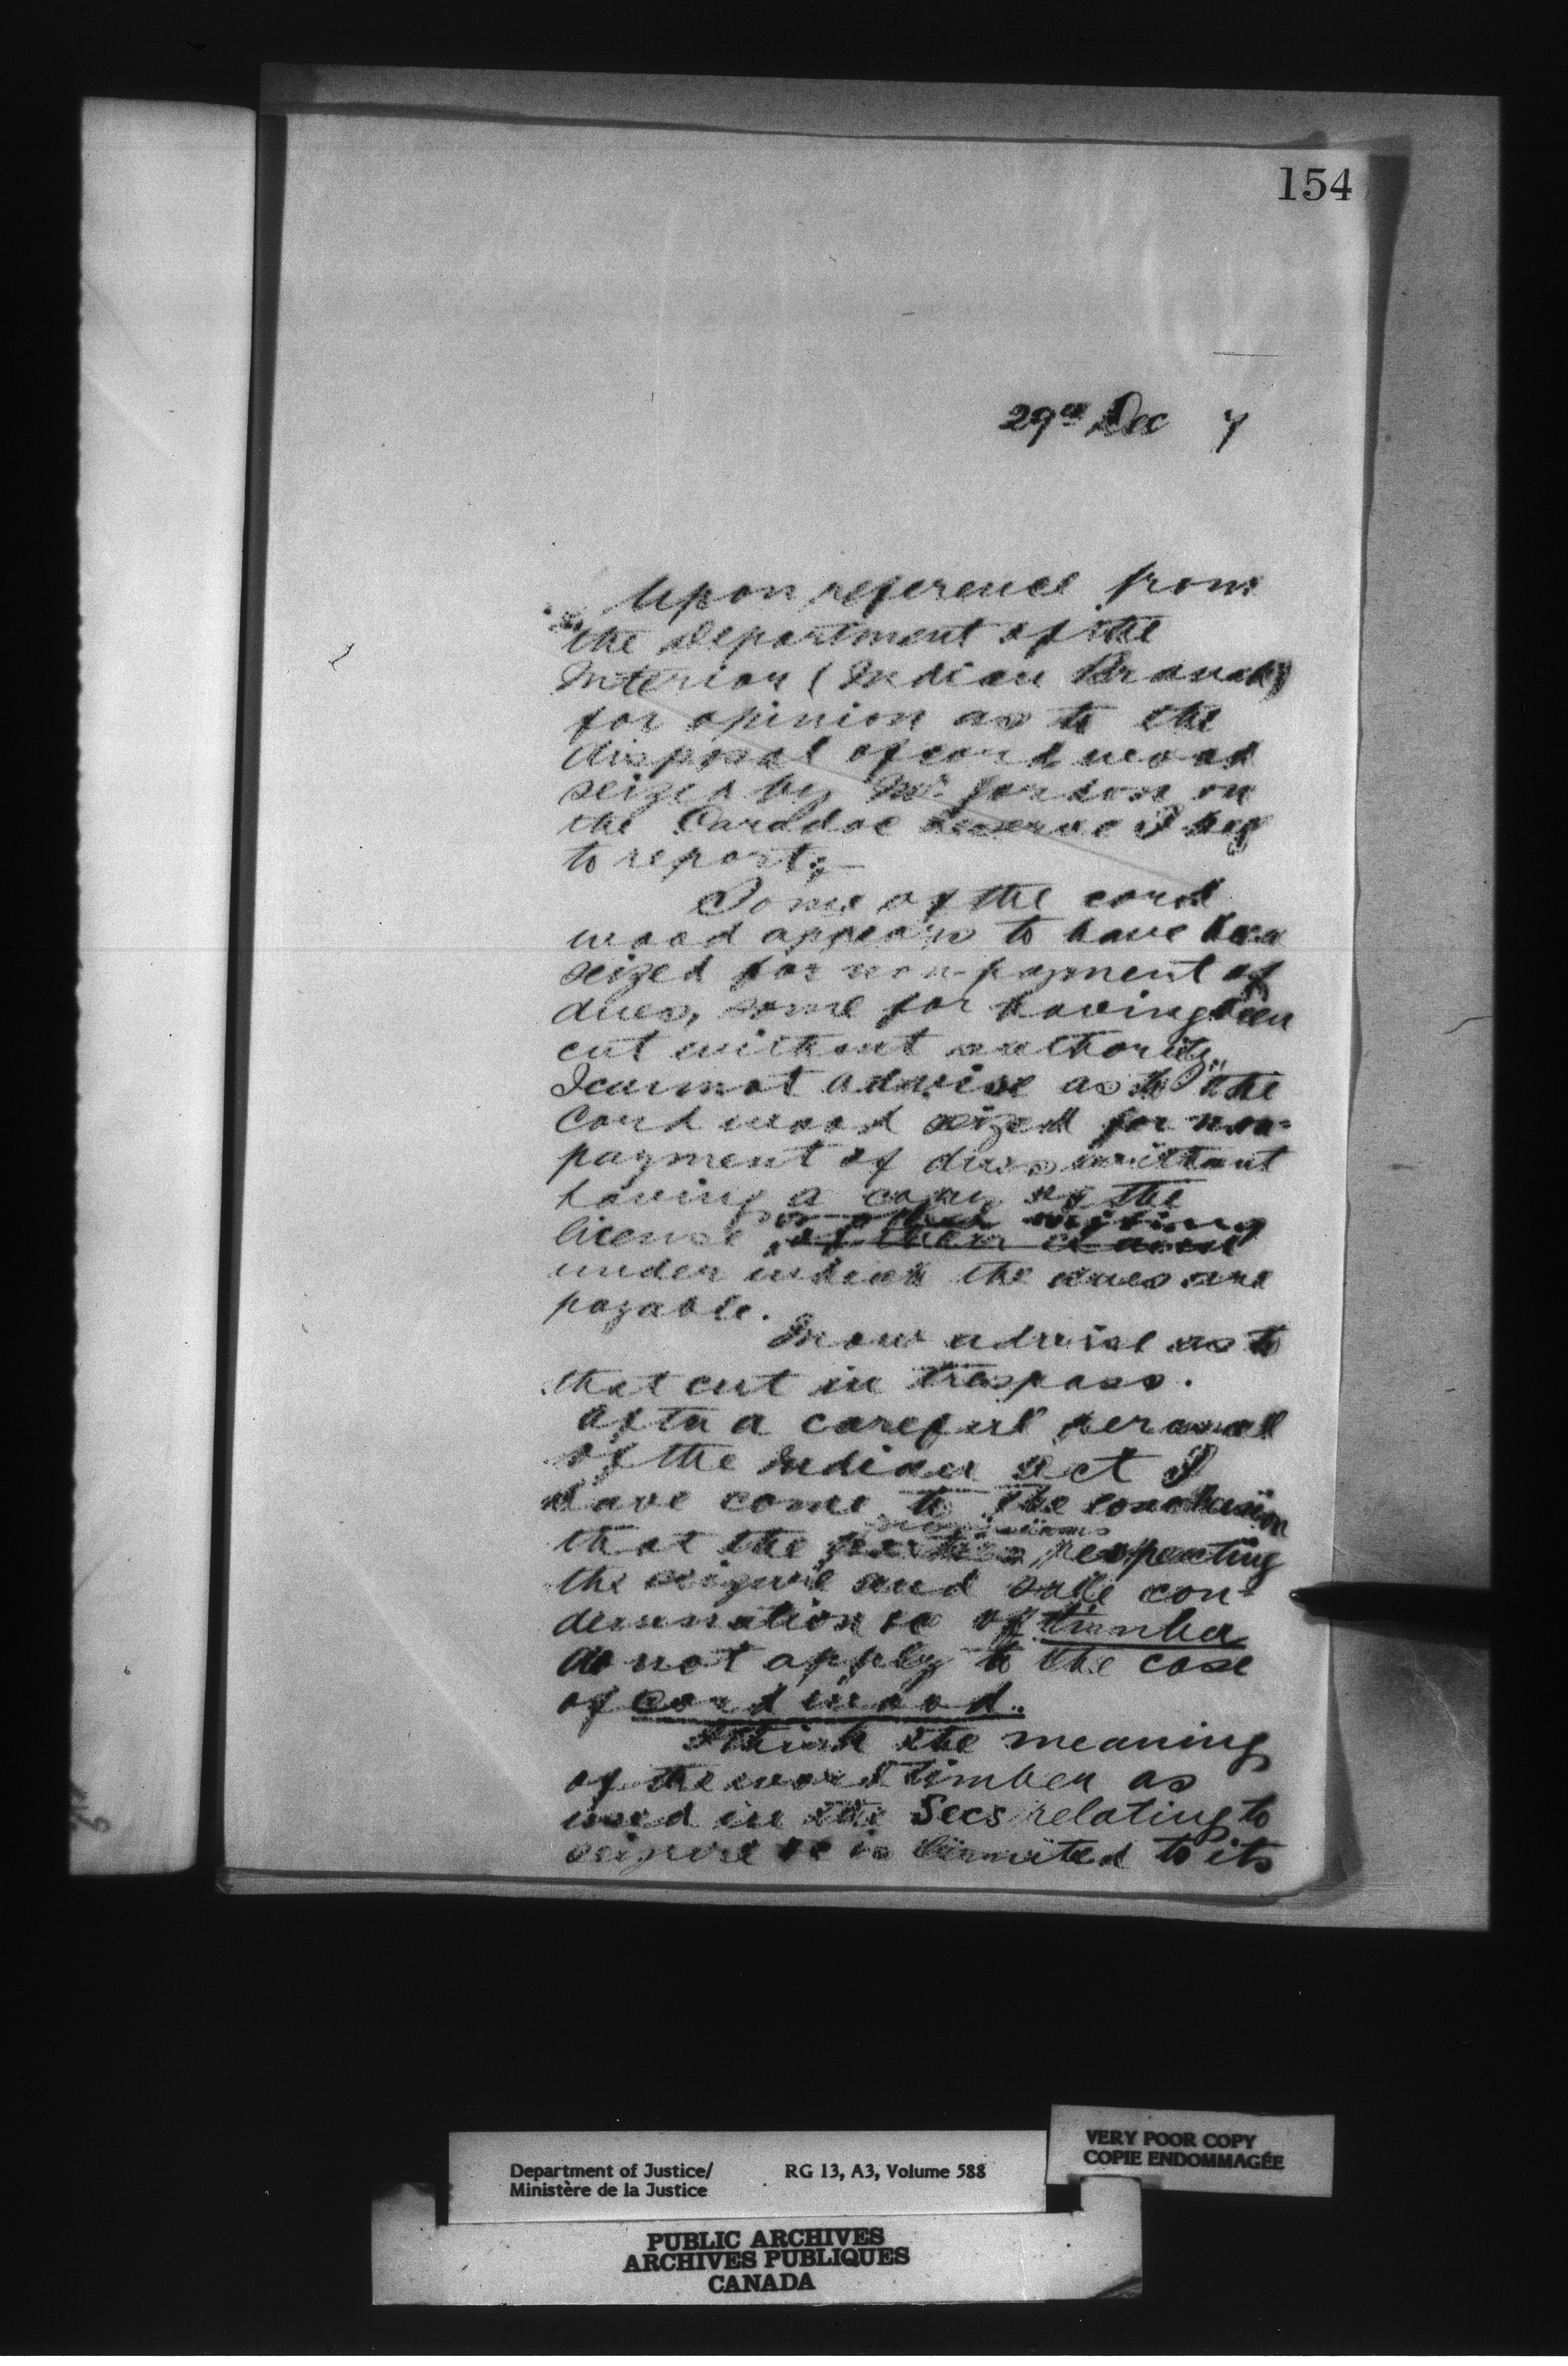 154
29th Dec 7
Upon reference from
the Department of the
Interior (Indian Branch)
for opinion as to the
disposal of cord wood
seized by Mr. Gordon on
the Caradoc Reserve I beg
to report;—
Some of the cord
wood appears to have been
seized for non-payment of
dues, some for having been
cut without authority.
I cannot advise as to the
Cord wood seized for non-
payment of dues without
having a copy of the
or other writing
license
under which the dues are
payable.
I now advise as to
that cut in trespass.
After a careful perusal
of the Indian Act I
have come to the conclusion
provisions
that the respecting
the seizure and sale con-
demnation &c of timber
do not apply to the case
of cord wood.
I think the meaning
of the word timber as
used in the Secs relating to
seizure &c is limited to its
Department of Justice/ RG 13, A3, Volume 588
Ministère de la Justice
VERY POOR COPY
COPIE ENDOMMAGÉE
PUBLIC ARCHIVES
ARCHIVES PUBLIQUES
CANADA